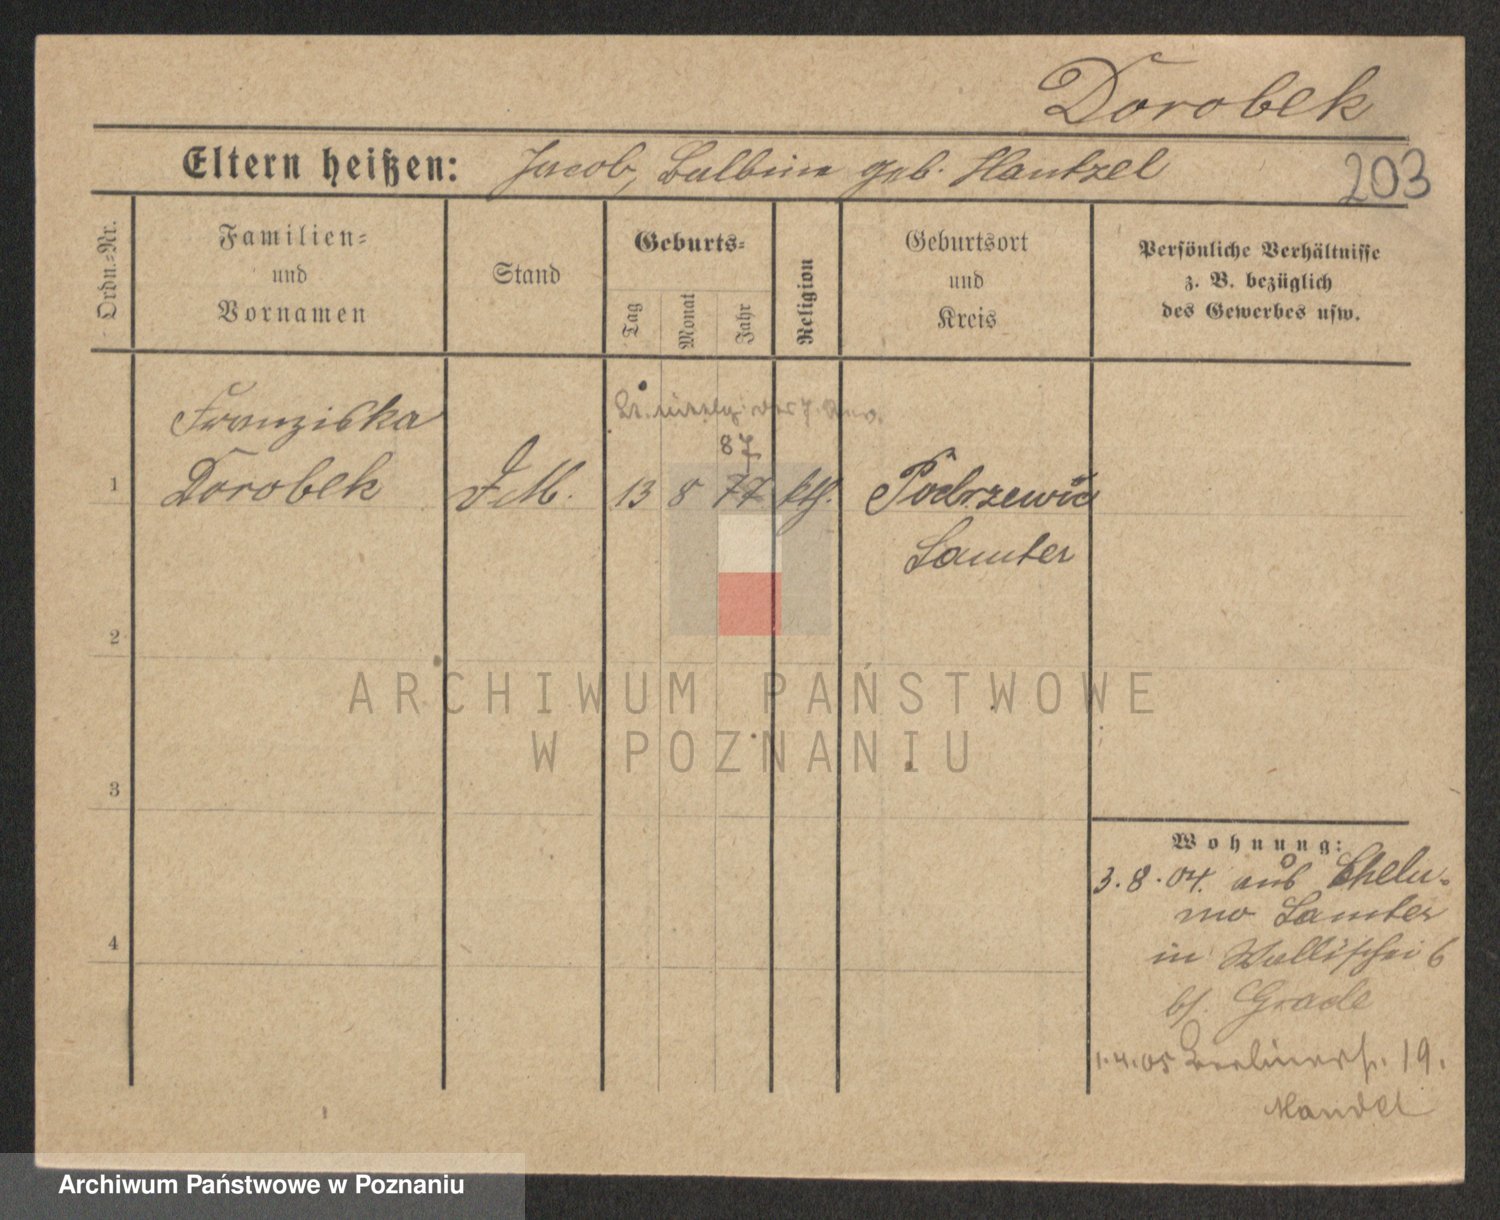 Dorobek
Eltern heißen: Jacob, Balbina geb. Hantzel
203
Ordn.-Nr.
Familien-
und
Vornamen
Stand
Geburts-
Tag
Monat
Jahr
Religion
Geburtsort
und
Kreis
Persönliche Verhältnisse
z. B. bezüglich
des Gewerbes usw.
Franziska
87
1 Dorobek D.M. 13 8 77 kth. Podrzewie
Samter
2
ARCHIWUM PAŃSTWOWE
W POZNANIU
3
Wohnung:
3.8.04. aus Chelm-
no Samter
4
in Wallischei 6
b/. Grade
1.4.05 Berlinerstr. 19.
Mandel
Archiwum Państwowe w Poznaniu